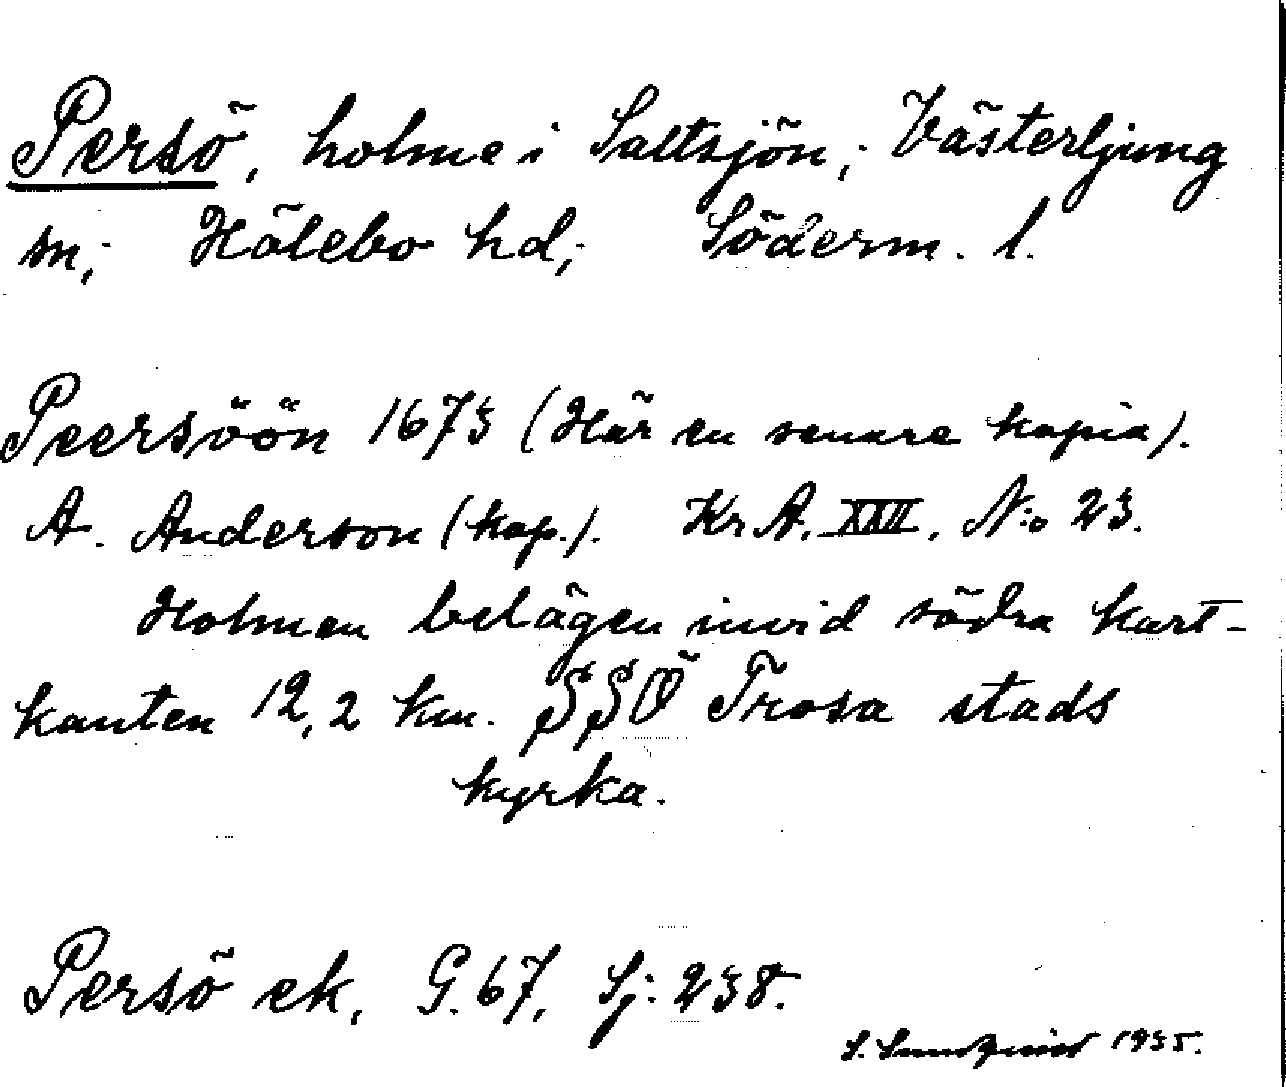 Persö, holme i Saltsjön; Västerljung
sn; Hölebo hd; Söderm. l.
Peersöön 1673 (Här en senare kopia).
A. Anderson (kop.). Kr A. XXII. N:o 23.
Holmen belägen invid södra kart-
kanten 12,2 km. SSÖ Trosa stads
kyrka.
Persö ek. G. 67, Sj: 238.
S. Sundqvist 1935.